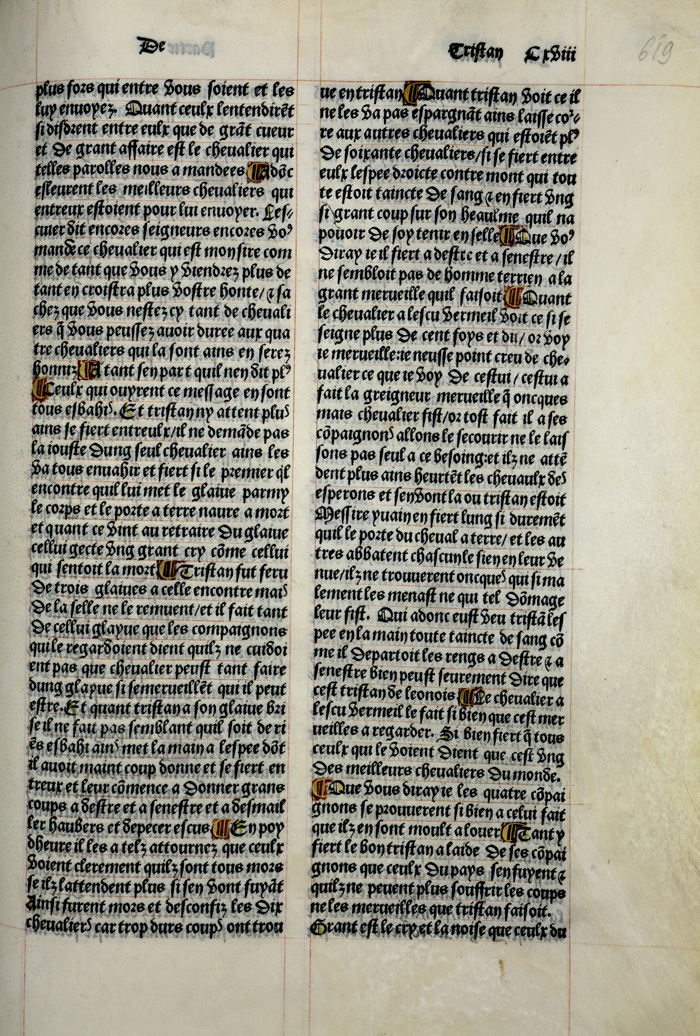 De
Tristan CxViii
619
plus fors qui entre Vous soient et les
luy enuoyez. Quant ceulx lentendirēt
si disdrent entre eulx que de grāt cueur
et De grant affaire est le cheualier qui
telles parolles nous a mandees ¶ Adōc
esleurent les meilleurs cheualiers qui
entreux estoient pour lui enuoyer. Les/
cuier dit encores seigneurs encores Vo⁹
mande ce cheualier qui est mon sire com
me de tant que Vous y Viendrez plus de
tant en croistra plus Vostre honte/ ⁊ sa
chez que Vous nestez cy tant de cheuali
ers q̄ Vous peussez auoir duree aux qua
tre cheualiers qui la sont ains en serez
honniz ¶ A tant sen part quil nen dit pl⁹
¶ Ceulx qui ouyrent ce message en sont
tous esbahis. Et tristan ny attent plus
ains se fiert entreulx/il ne demāde pas
la iouste Dung seul cheualier ains les
Va tous enuahir et fiert si le premier q̄l
encontre quil lui met le glaiue parmy
le corps et le porte a terre naure a mort
et quant ce Vint au retraire Du glaiue
cellui gecte Vng grant cry cōme cellui
qui sentoit la mort ¶ Tristan fut feru
De trois glaiues a celle encontre mais
De la selle ne le remuent/et il fait tant
De cellui glayue que les compaignons
qui le regardoient dient quilz ne cuidoi
ent pas que cheualier peust tant faire
dung glayue si semerueillēt qui il peut
estre. Et quant tristan a son glaiue bri
se il ne fait pas semblant quil soit de ri
ēs esbahi ains met la main a lespee dōt
il auoit maint coup donne et se fiert en
treux et leur cōmence a Donner grans
coups a destre et a senestre et a desmail
ler haubers et depecer escus ¶ En poy
dheure il les a telz attournez que ceulx
Voient clerement quilz sont tous mors
se ilz lattendent plus si sen Vont fuyāt
Ainsi furent mors et desconfiz les Dix
cheualiers car trop durs coups ont trou
ue en tristan ¶ Quant tristan Voit ce il
ne les Va pas espargnāt ains laisse co²/
re aux autres cheualiers qui estoiēt pl⁹
De soixante cheualiers/si se fiert entre
eulx lespee droicte contre mont qui tou
te estoit taincte De sang ⁊ en fiert Vng
si grant coup sur son heaulme quil na
pouoir De soy tenir en selle ¶ Que Vo⁹
Diray ie il fiert a destre et a senestre/il
ne sembloit pas de homme terrien a la
grant merueille quil faisoit ¶ Quant
le cheualier a lescu Vermeil Voit ce si se
seigne plus De cent foys et dit/ or Voy
ie merueille:ie neusse point creu de che/
ualier ce que ie Voy De cestui/ cestui a
fait la greigneur merueille q̄ oncques
mais cheualier fist/or tost fait il a ses
cōpaignons allons le secourir ne le lais
sons pas seul a ce besoing:et ilz ne attē
dent plus ains heurtēt les cheuaulx des
esperons et sen Vont la ou tristan estoit
Messire yuain en fiert lung si duremēt
quil le porte du cheual a terre/ et les au
tres abbatent chascun le sien en leur Ve
nue/ilz ne trouuerent oncques qui si ma
lement les menast ne qui tel Dōmage
leur fist. Qui adonc eust Veu tristā les
pee en la main toute taincte de sang cō
me il Departoit les rengs a Destre ⁊ a
senestre bien peust seurement Dire que
cest tristan de leonois ¶ Le cheualier a
lescu Vermeil le fait si bien que cest mer
ueilles a regarder. Si bien fiert q̄ tous
ceulx qui le Voient Dient que cest Vng
Des meilleurs cheualiers Du monde.
¶ Que Vous diray ie les quatre cōpai
gnons se prouuerent si bien a celui fait
que ilz en sont moult a louer ¶ Tant y
fiert le bon tristan a laide De ses cōpai
gnons que ceulx Du pays sen fuyent ⁊
quilz ne peuent plus souffrir les coups
ne les merueilles que tristan faisoit.
Grant est le cry et la noise que ceulx du